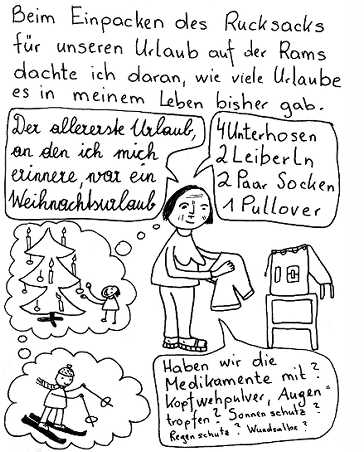 Beim Einpacken des Rucksacks
für unseren Urlaub auf der Rams
dachte ich daran, wie viele Urlaube
es in meinem Leben bisher gab.
Der allererste Urlaub,
an den ich mich
erinnere, war ein
Weihnachtsurlaub
4 Unterhosen
2 Leiberln
2 Paar Socken
1 Pullover
Haben wir die
Medikamente mit?
Kopfwehpulver, Augen=
tropfen? Sonnenschutz?
Regenschutz? Wundsalbe?